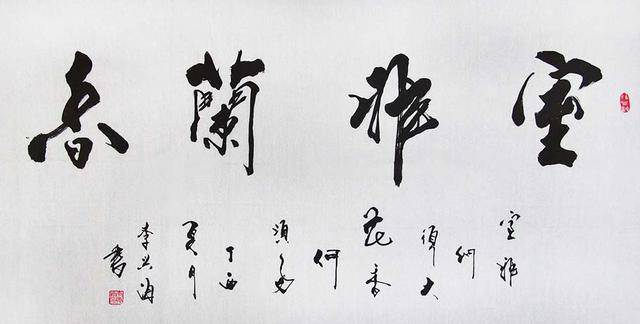 室雅蘭香
室雅
何
須大
花香
何
須多
丁酉
夏月
李兴海
书